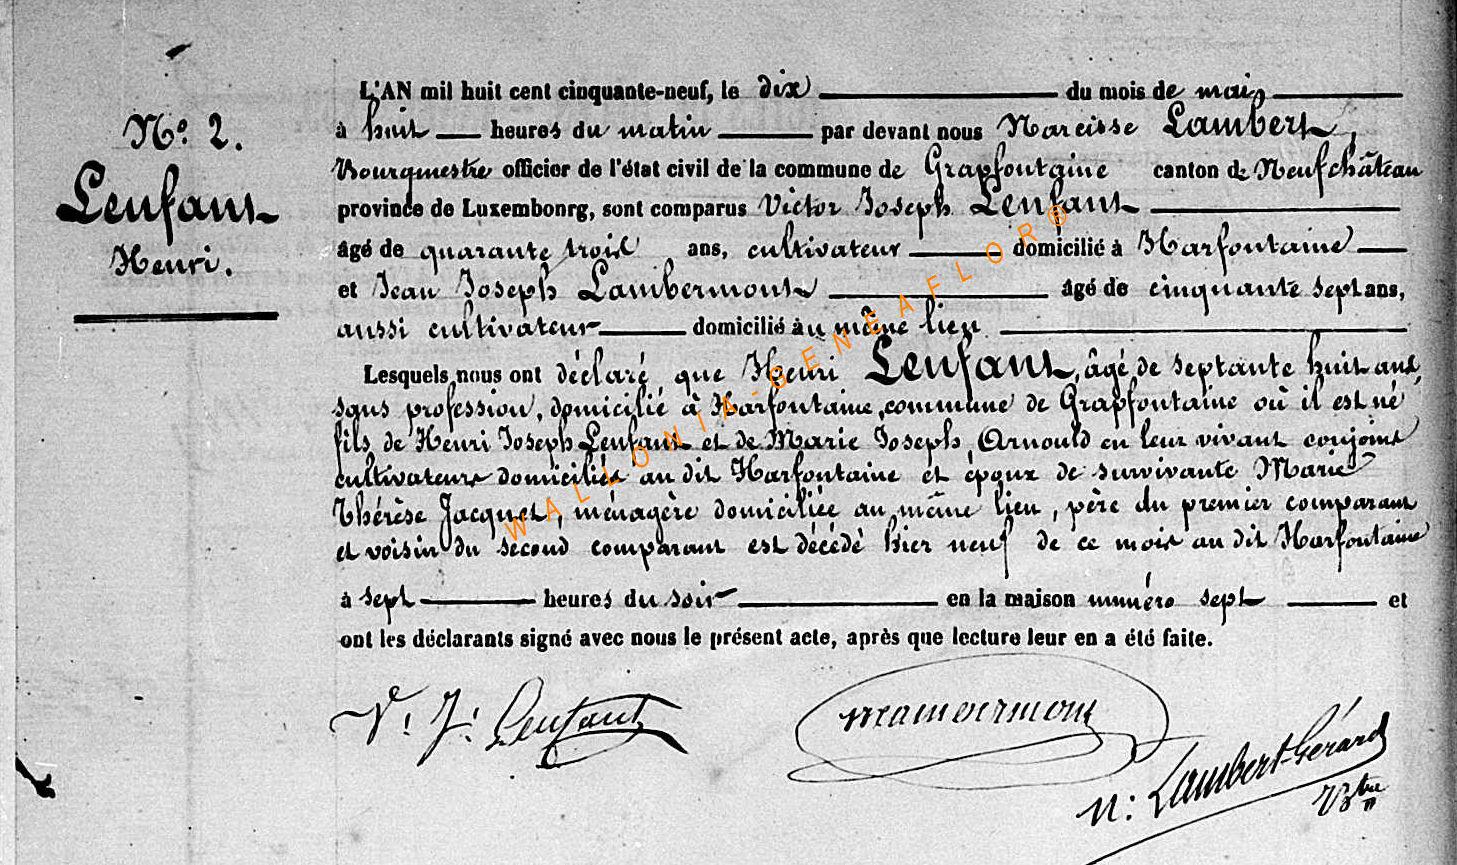 N° 2.
Lenfant
Henri.
L'AN mil huit cent cinquante-neuf, le dix du mois de mai,
à huit heures du matin par devant nous Narcisse Lambert,
Bourgmestre officier de l'état civil de la commune de Grapfontaine canton de Neufchâteau
province de Luxembourg, sont comparus Victor Joseph Lenfant
âgé de quarante trois ans, cultivateur domicilié à Harfontaine
et Jean Joseph Lambermont âgé de cinquante sept ans,
aussi cultivateur domicilié au même lieu
Lesquels nous ont déclaré, que Henri Lenfant, âgé de septante huit ans,
sans profession, domicilié à Harfontaine, commune de Grapfontaine où il est né
fils de Henri Joseph Lenfant et de Marie Joseph Arnould en leur vivant conjoint
cultivateurs domiciliés au dit Harfontaine et époux de survivante Marie
Thérèse Jacquet, ménagère domiciliée au même lieu, père du premier comparant
et voisin du second comparant est décédé hier neuf de ce mois au dit Harfontaine
à sept heures du soir en la maison numéro sept et
ont les déclarants signé avec nous le présent acte, après que lecture leur en a été faite.
V. J. Lenfant
N: Lambert-Gérard
Btre
WALLONIA-GENEAFLOR®